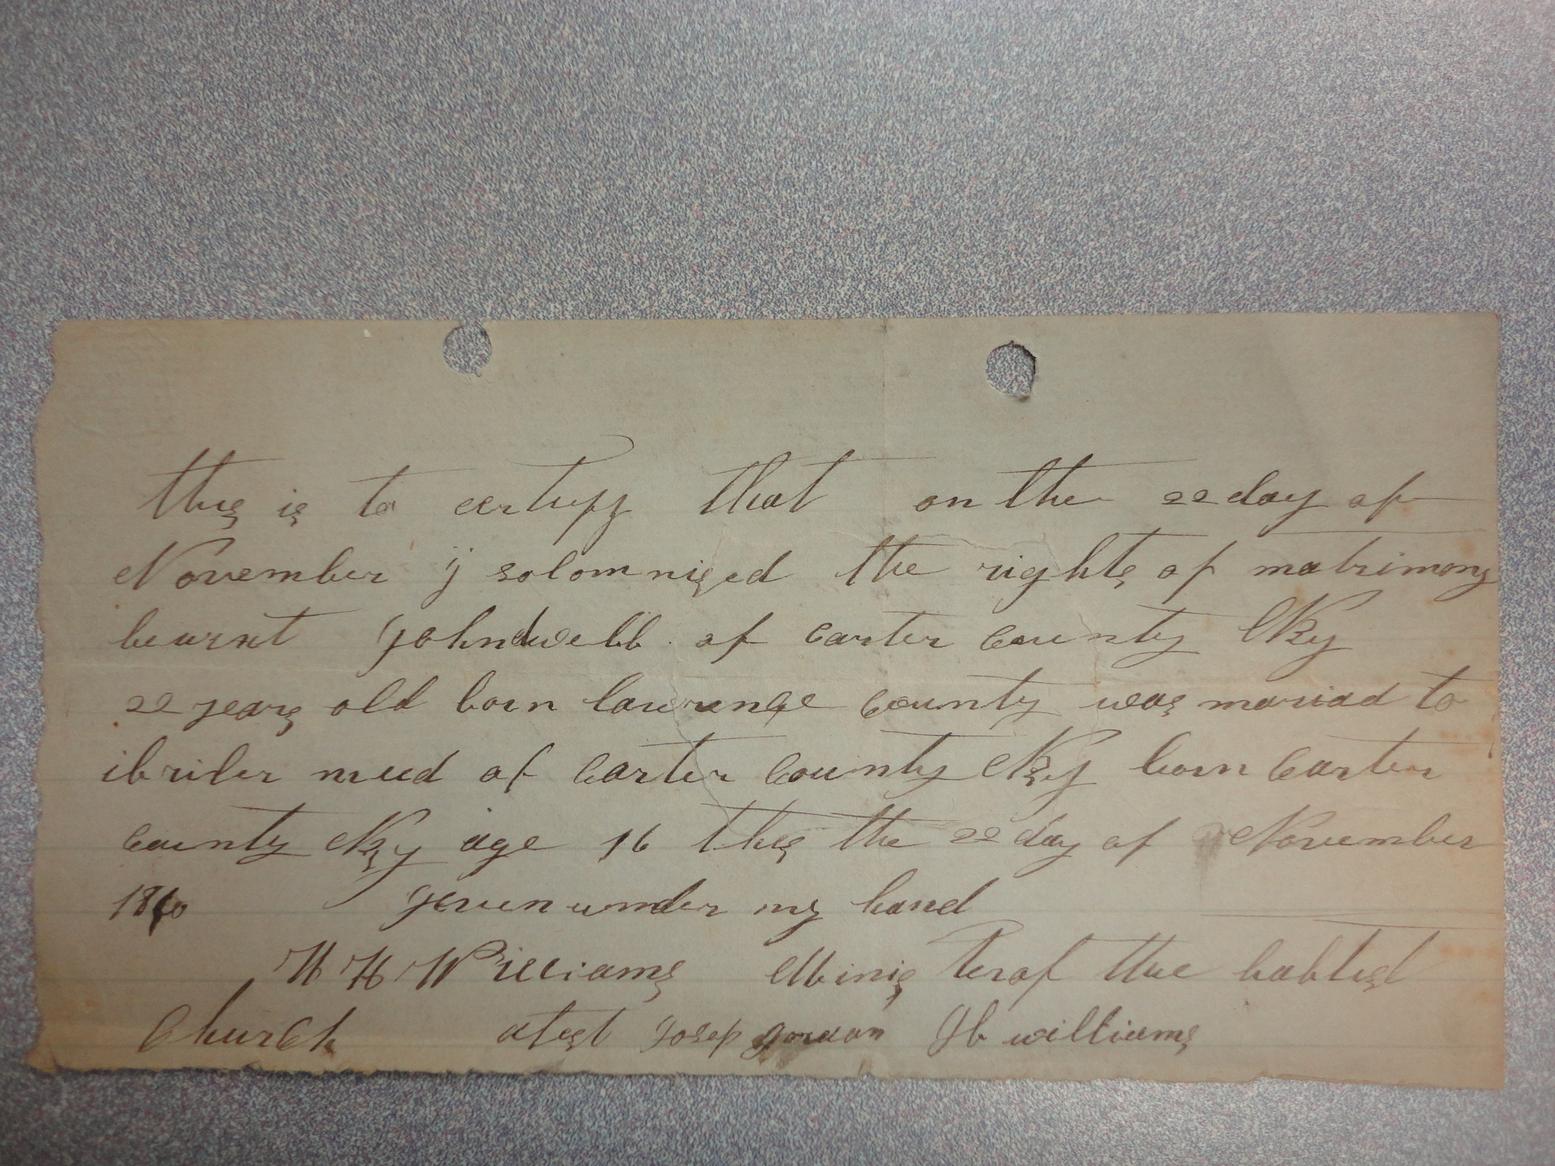 this is to certify that on the 22 day of
November i solomnized the rights of matrimony
betwent John webb of Carter County Ky
22 years old born lawrence County was mariad to
of Carter County Ky born Carter
County Ky age 16 this the 22 day of November
given under my hand
H H Williams Minister of the babtist
Church atest Josep J b williams